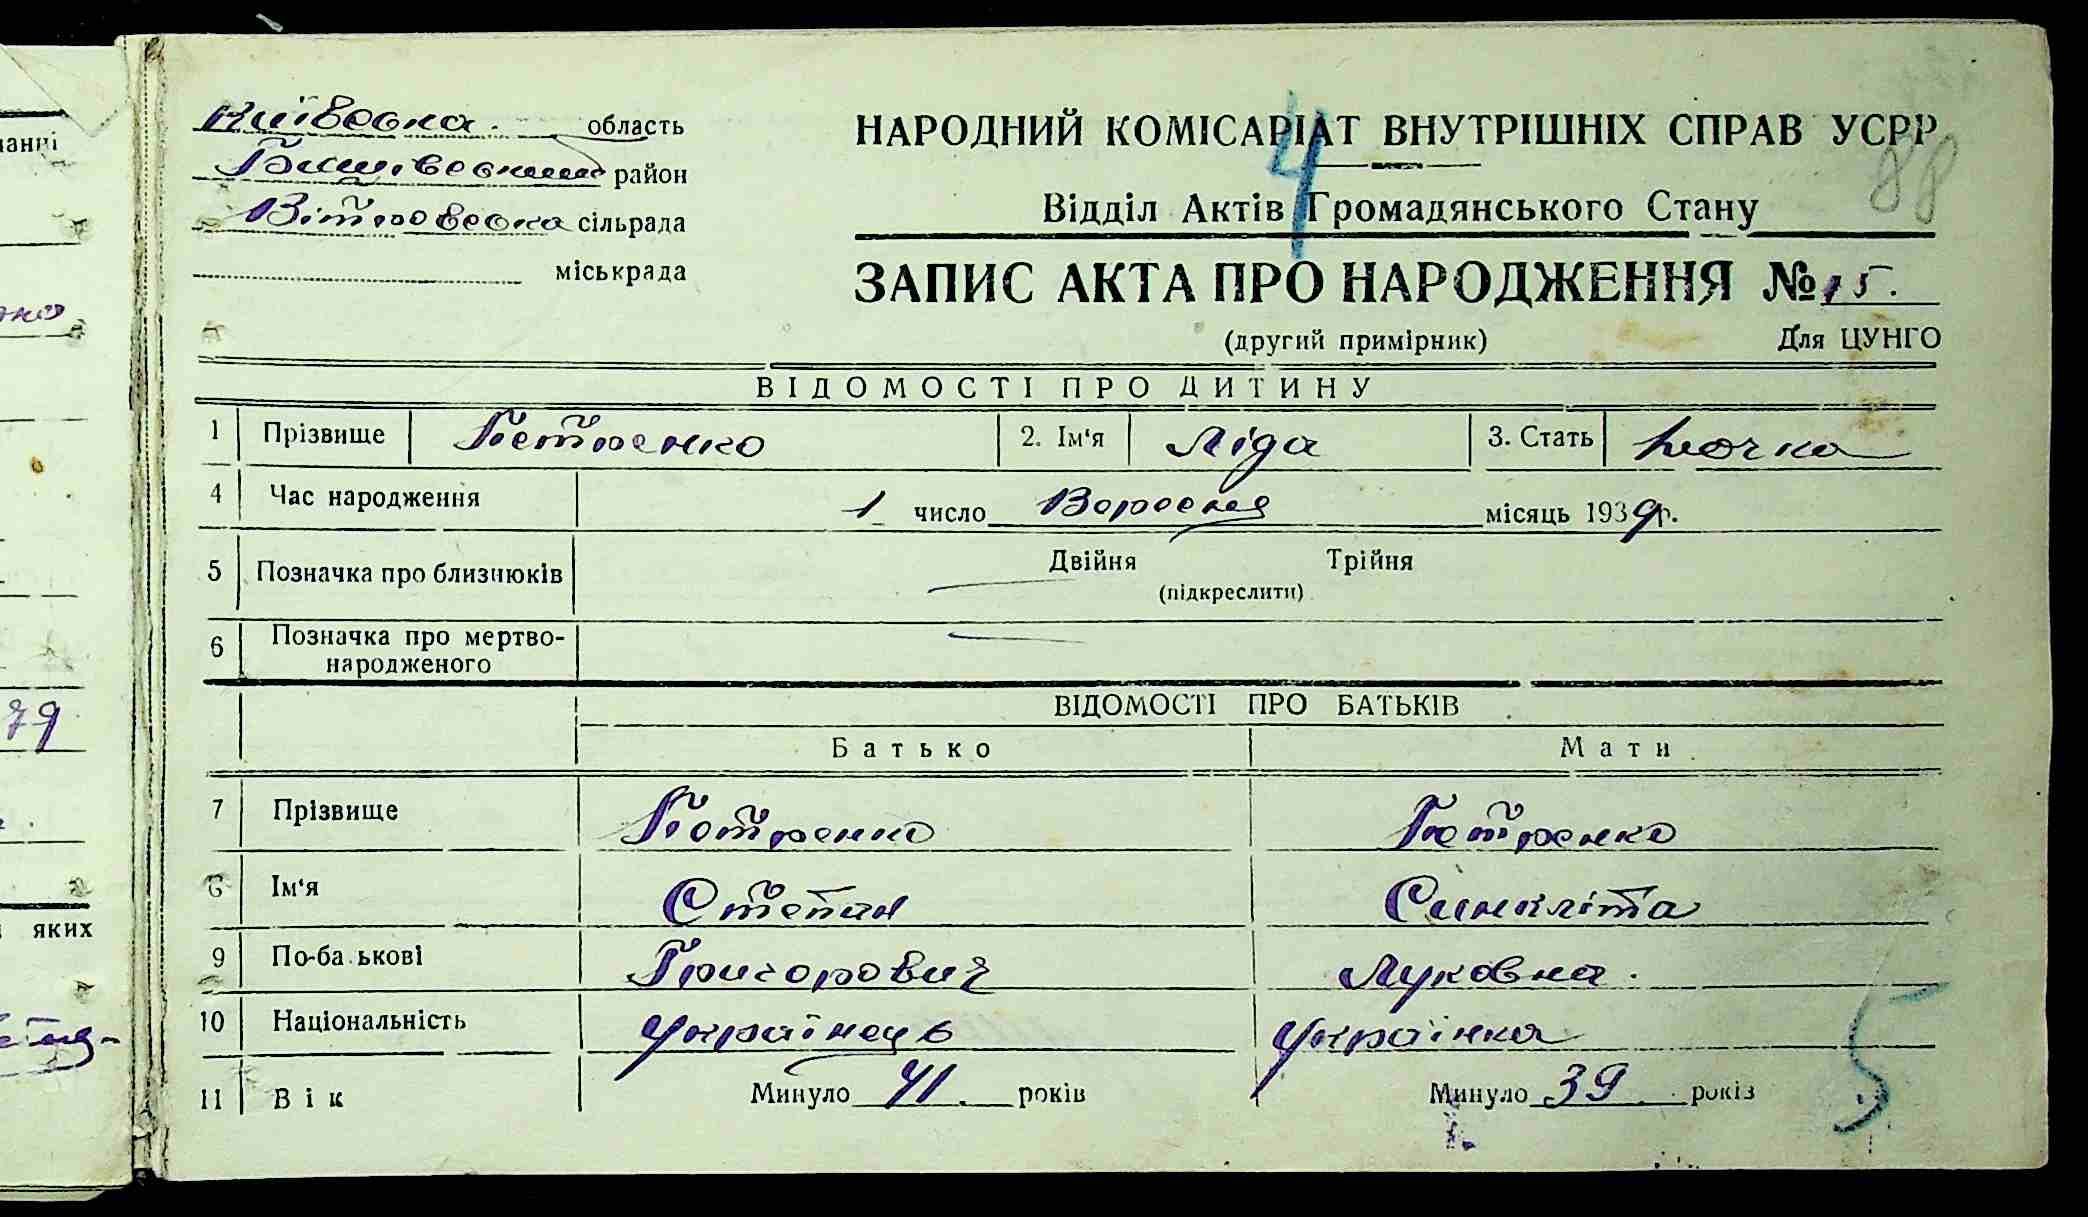 Київська область
район
Вітровська сільрада
міськрада
НАРОДНИЙ КОМІСАРІАТ ВНУТРІШНІХ СПРАВ УСРР
88
4
Відділ Актів Громадянського Стану
ЗАПИС АКТА ПРО НАРОДЖЕННЯ № 15.
(другий примірник) Для ЦУНГО
ВІДОМОСТІ ПРО ДИТИНУ
1 Прізвище Петренко 2. Ім'я Ліда 3. Стать жіночка
4 Час народження 1 число Вересня місяць 1939 р.
5 Позначка про близнюків Двійня Трійня
(підкреслити)
6 Позначка про мертво-
народженого
ВІДОМОСТІ ПРО БАТЬКІВ
Батько Мати
7 Прізвище Петренко Петренко
8 Ім'я Степан Синкліта
9 По-ба ькові Григорович Луковна.
10 Національність Українець Українка
11 Вік Минуло 41. років Минуло 39. років
5
79
яких